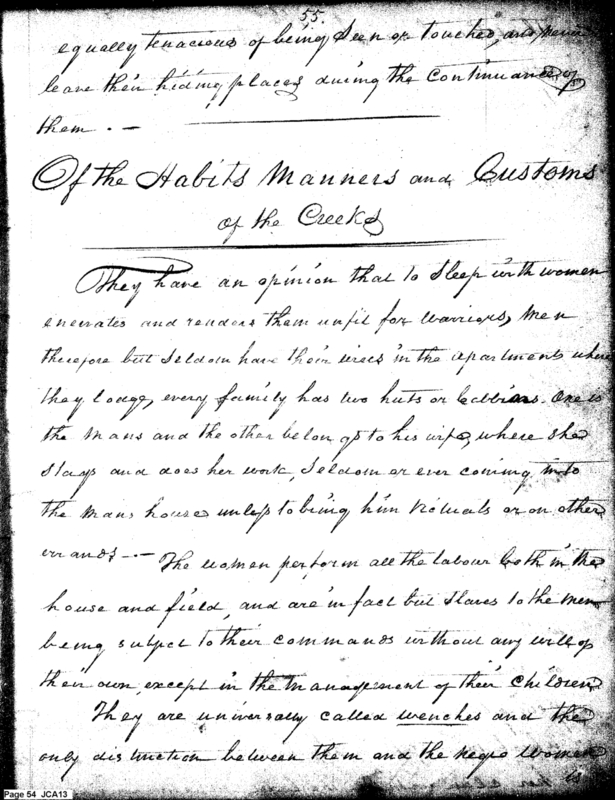 55.
equally tenacious of being seen or touched, and never
leave their hiding places during the Continuance of
them. —
Of the Habits Manners and Customs
of the Creeks
They have an opinion that to Sleep with women
enervates and renders them unfit for warriors, Men
therefore but Seldom have their wives in the apartments where
they lodge, every family has two huts or Cabbins. One is
the Mans and the other belongs to his wife, where she
Stays and does her work, Seldom or ever coming into
the Mans house unless to bring him victuals or on other
errands — The women perform all the labour both in the
house and field, and are in fact but Slaves to the Men
being subject to their commands without any will of
their own, except in the Management of their Children
They are universally called wenches and the
only distinction between them and the negro Women
is
Page 54 JCA13